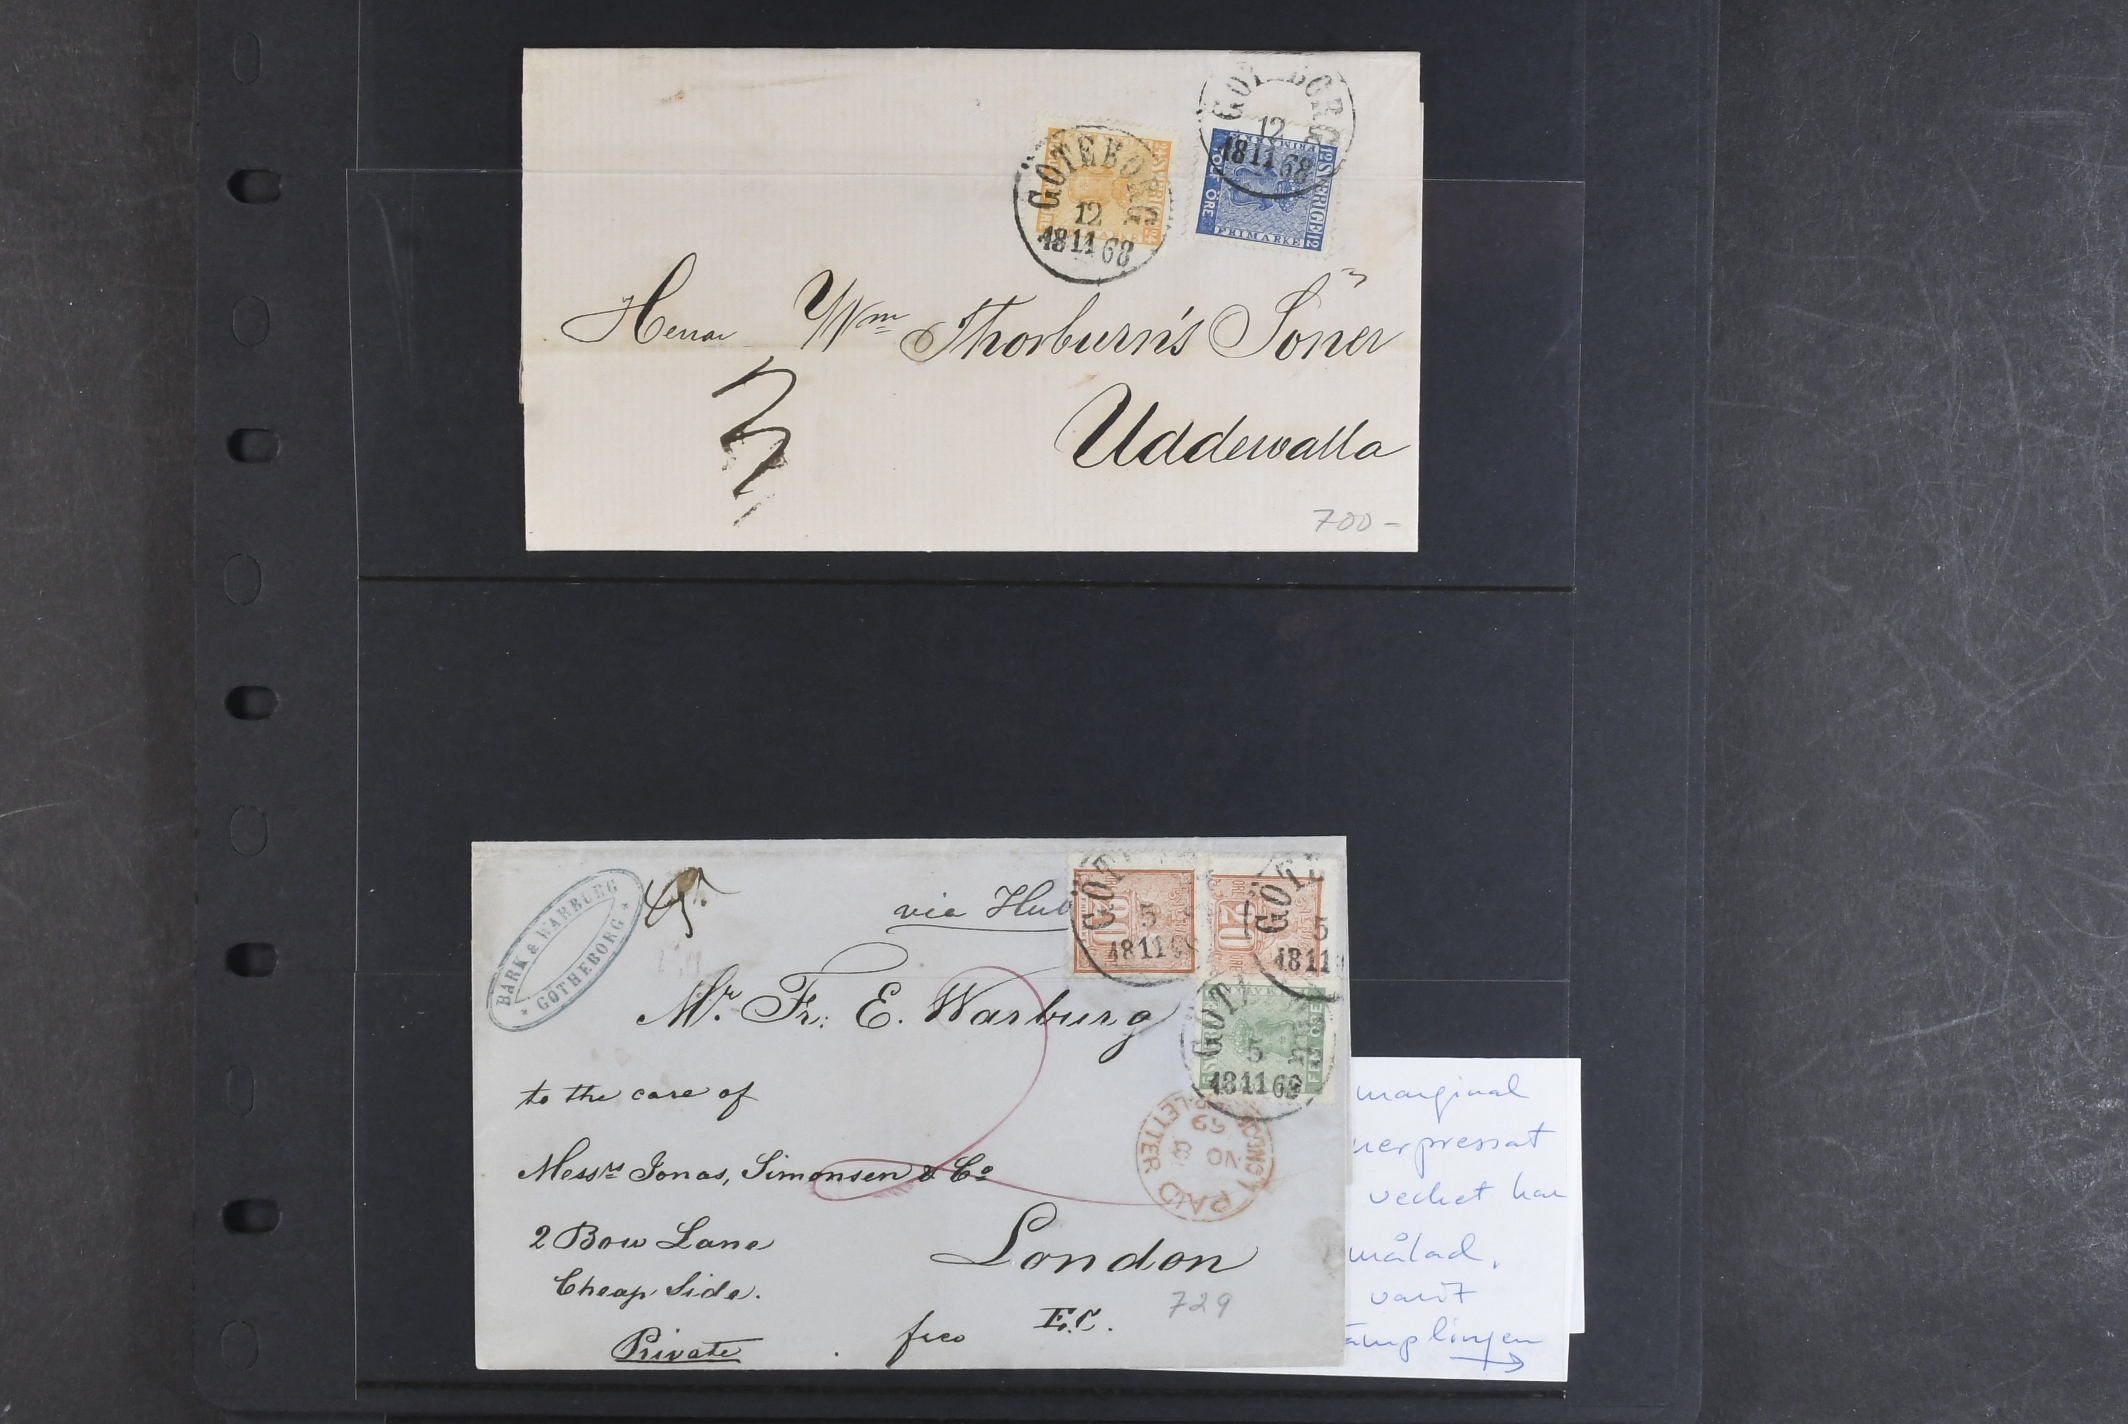 GÖTEBORG
12
18 11 68
GÖTEBORG
12
18 11 68
SVERIGE
TOLF ÖRE
FRIMÄRKE
Herrar Wm Thorburn's Söner
Uddewalla
700-
BARK & WARBURG
GÖTHEBORG
via Hu
GÖT
5
18 11
20
GÖTE
5
18 11
20
ÖRE
Mr. Fr: E. Warburg
GÖT
5
18 11 69
FEM ÖRE
to the care of
LONDON
PAID
NO 9
69
Messrs Jonas, Simonsen & Co
2 Bow Lane
London
Cheap Side.
E.C.
729
Private
fco
marginal
nerpressat
vecket har
målad,
varit
ämplingen